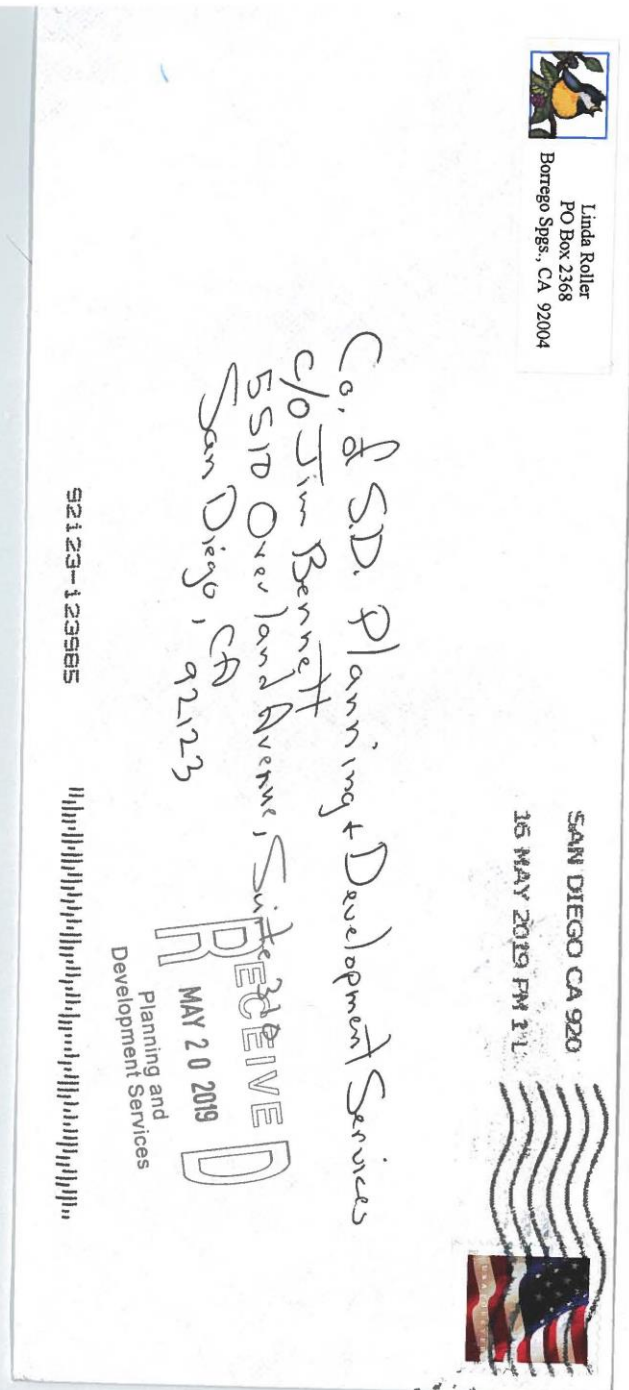 Linda Roller
PO Box 2368
Borrego Spgs., CA 92004
SAN DIEGO CA 920
16 MAY 2019 PM 1 L
USA FOREVER
Co. of S.D. Planning + Development Services
c/o Jim Bennett
5510 Overland Avenue, Suite 310
San Diego, CA
92123
RECEIVED
MAY 20 2019
Planning and
Development Services
92123-123985